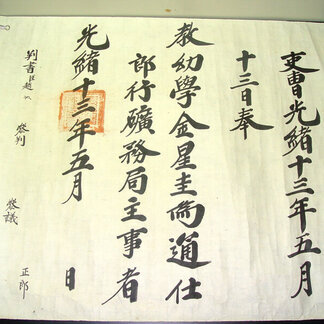 吏曹光緒十三年五月
十三日奉
教幼學金星圭為通仕
郎行礦務局主事者
光緒十三年五月 日
判書 參判 參議 正郎